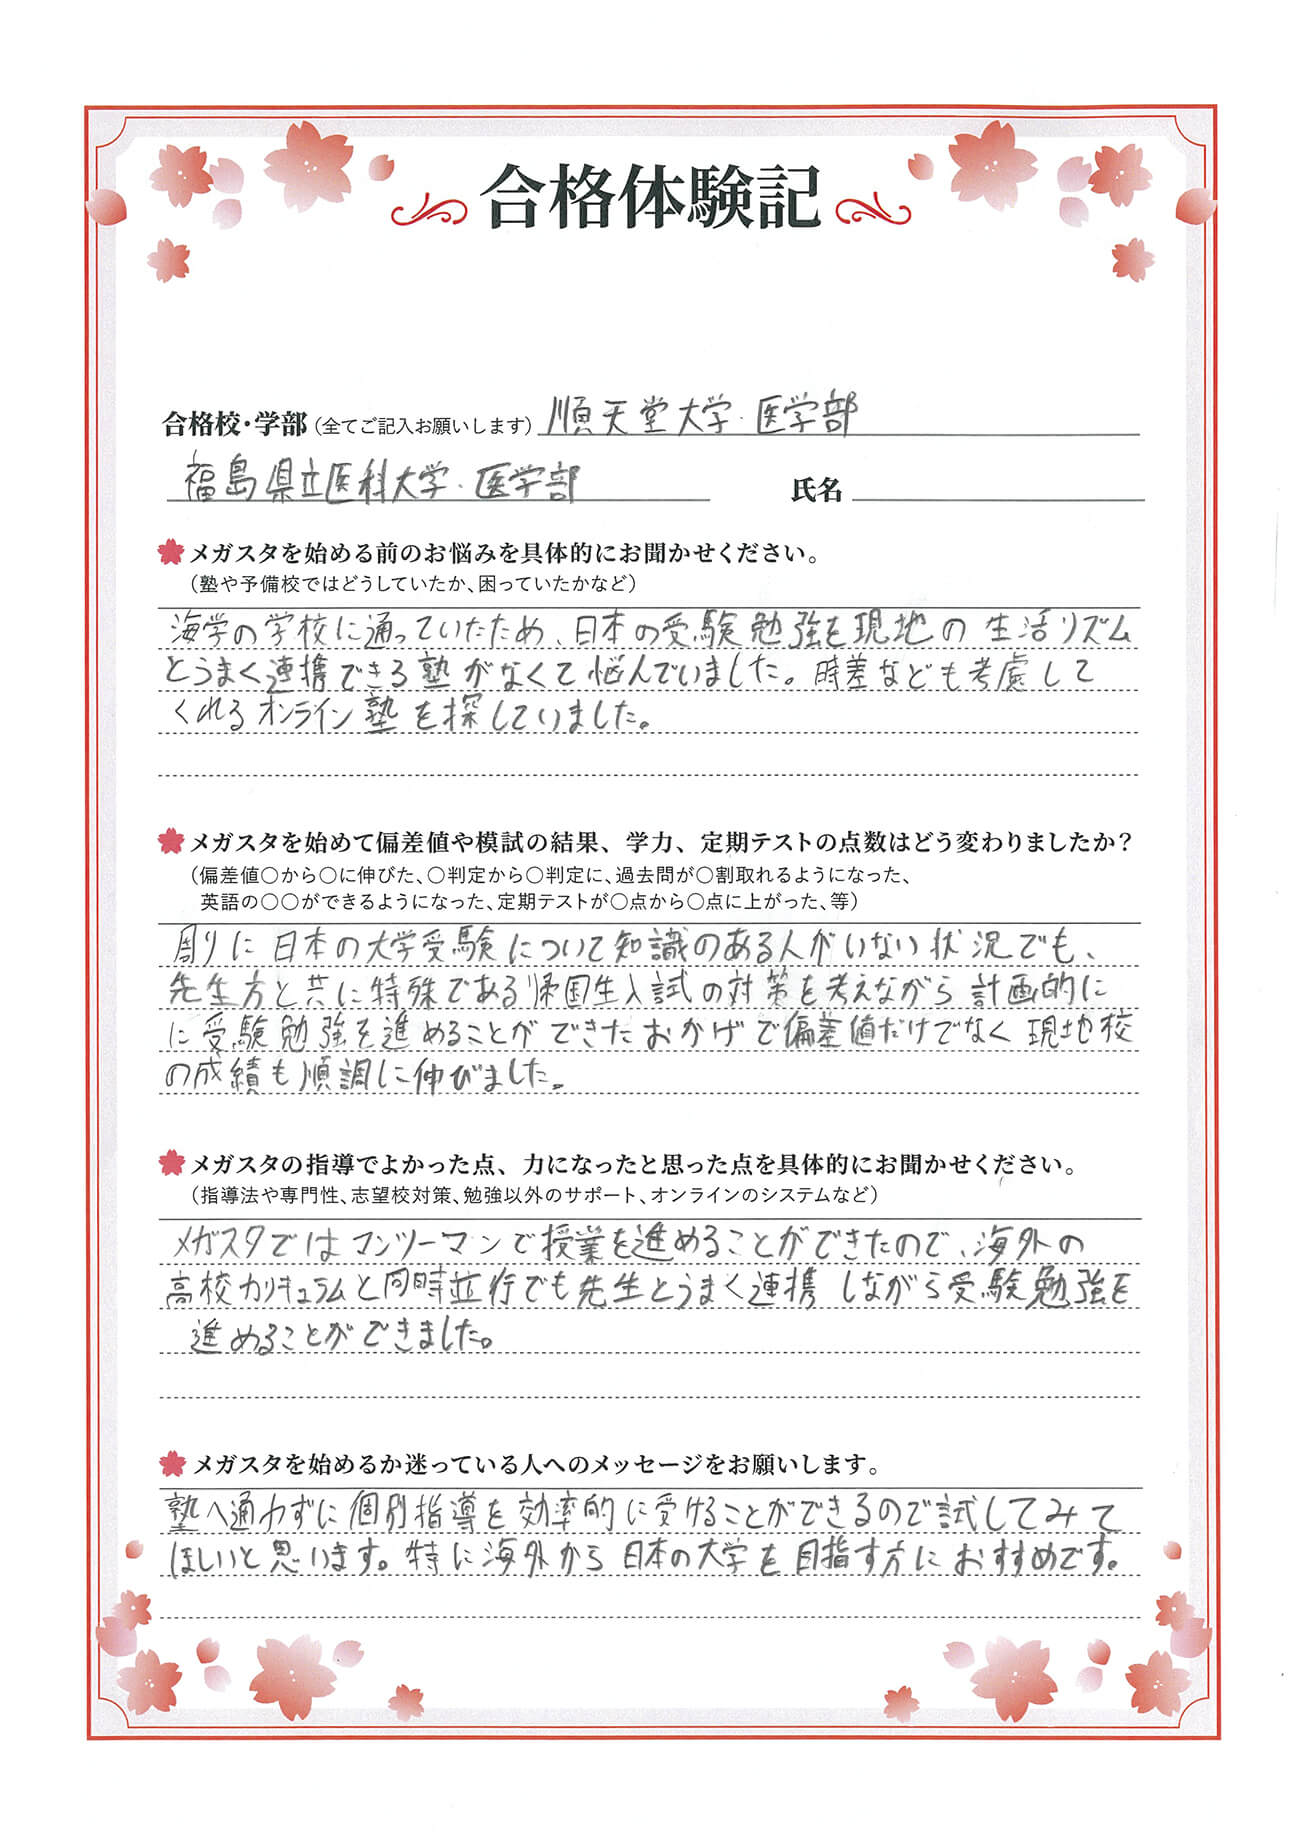 合格体験記
合格校・学部(全てご記入お願いします) 順天堂大学・医学部
福島県立医科大学・医学部 氏名
メガスタを始める前のお悩みを具体的にお聞かせください。
(塾や予備校ではどうしていたか、困っていたかなど)
海学の学校に通っていたため、日本の受験勉強を現地の生活リズム
とうまく連携できる塾がなくて悩んでいました。時差なども考慮して
くれるオンライン塾を探していました。
メガスタを始めて偏差値や模試の結果、学力、定期テストの点数はどう変わりましたか?
(偏差値○から○に伸びた、○判定から○判定に、過去問が○割取れるようになった、
英語の○○ができるようになった、定期テストが○点から○点に上がった、等)
周りに日本の大学受験について知識のある人がいない状況でも、
先生方と共に特殊である帰国生入試の対策を考えながら計画的に
に受験勉強を進めることができたおかげで偏差値だけでなく現地校
の成績も順調に伸びました。
メガスタの指導でよかった点、力になったと思った点を具体的にお聞かせください。
(指導法や専門性、志望校対策、勉強以外のサポート、オンラインのシステムなど)
メガスタではマンツーマンで授業を進めることができたので、海外の
高校カリキュラムと同時並行でも先生とうまく連携しながら受験勉強を
進めることができました。
メガスタを始めるか迷っている人へのメッセージをお願いします。
塾へ通わずに個別指導を効率的に受けることができるので試してみて
ほしいと思います。特に海外から日本の大学を目指す方におすすめです。